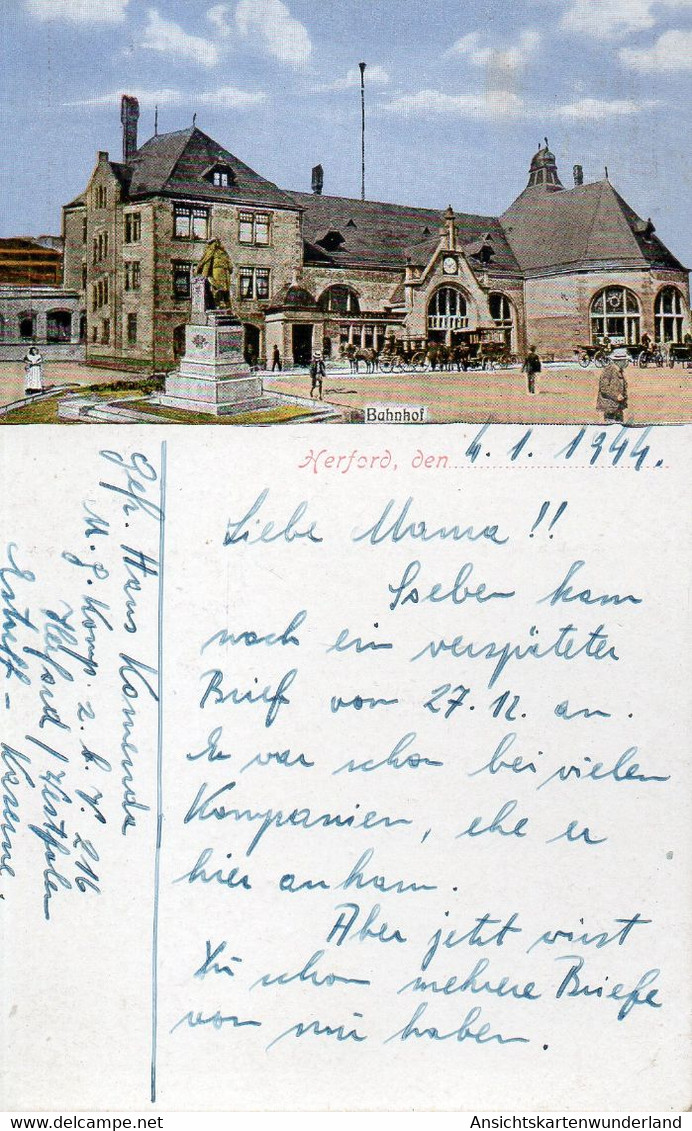 Bahnhof
Herford, den 4.1.1944.
Liebe Mama!!
Soeben kam
noch ein verspäteter
Brief vom 27.12. an.
Er war schon bei vielen
Kompanien, ehe er
hier ankam.
Aber jetzt wirst
Du schon mehrere Briefe
von mir haben.
Gefr. Hans Komenda
M.G. Komp. z.b.V. 216
Herford / Westfalen
Estorff-Kaserne.
www.delcampe.net
Ansichtskartenwunderland